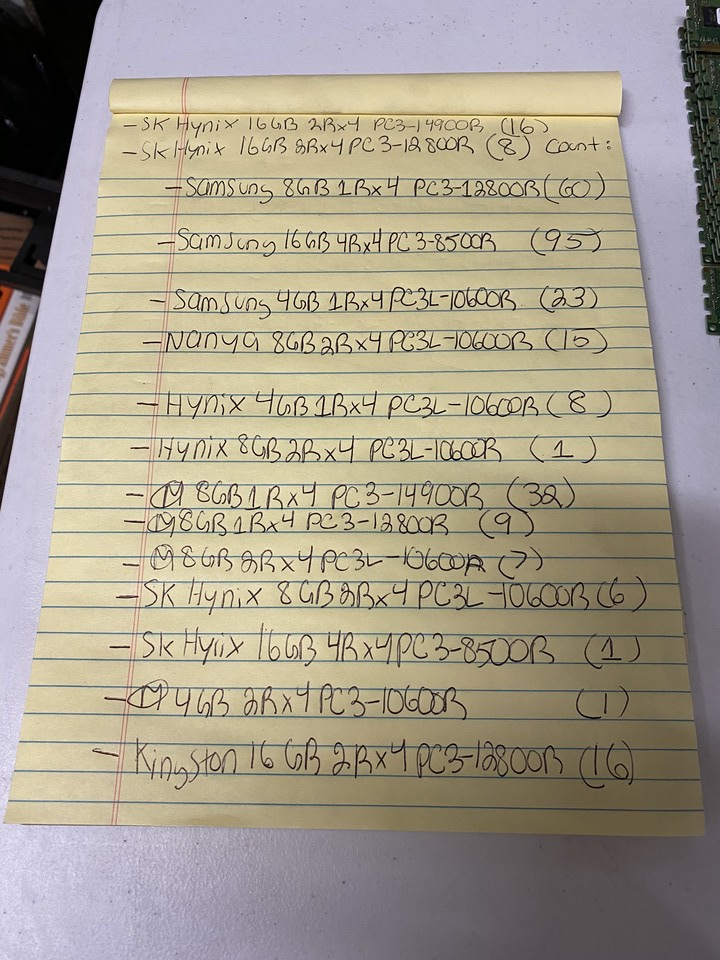 - SK Hynix 16GB 2Rx4 PC3-14900R (16)
- SK Hynix 16GB 2Rx4 PC3-12800R (8) Count:
- Samsung 8GB 1Rx4 PC3-12800R (60)
- Samsung 16GB 4Rx4 PC3-8500R (95)
- Samsung 4GB 1Rx4 PC3L-10600R (23)
- Nanya 8GB 2Rx4 PC3L-10600R (15)
- Hynix 4GB 1Rx4 PC3L-10600R (8)
- Hynix 8GB 2Rx4 PC3L-10600R (1)
- M 8GB 1Rx4 PC3-14900R (32)
- M 8GB 1Rx4 PC3-12800R (9)
- M 8GB 2Rx4 PC3L-10600R (7)
- SK Hynix 8GB 2Rx4 PC3L-10600R (6)
- SK Hynix 16GB 4Rx4 PC3-8500R (1)
- M 4GB 2Rx4 PC3-10600R (1)
- Kingston 16GB 2Rx4 PC3-12800R (16)